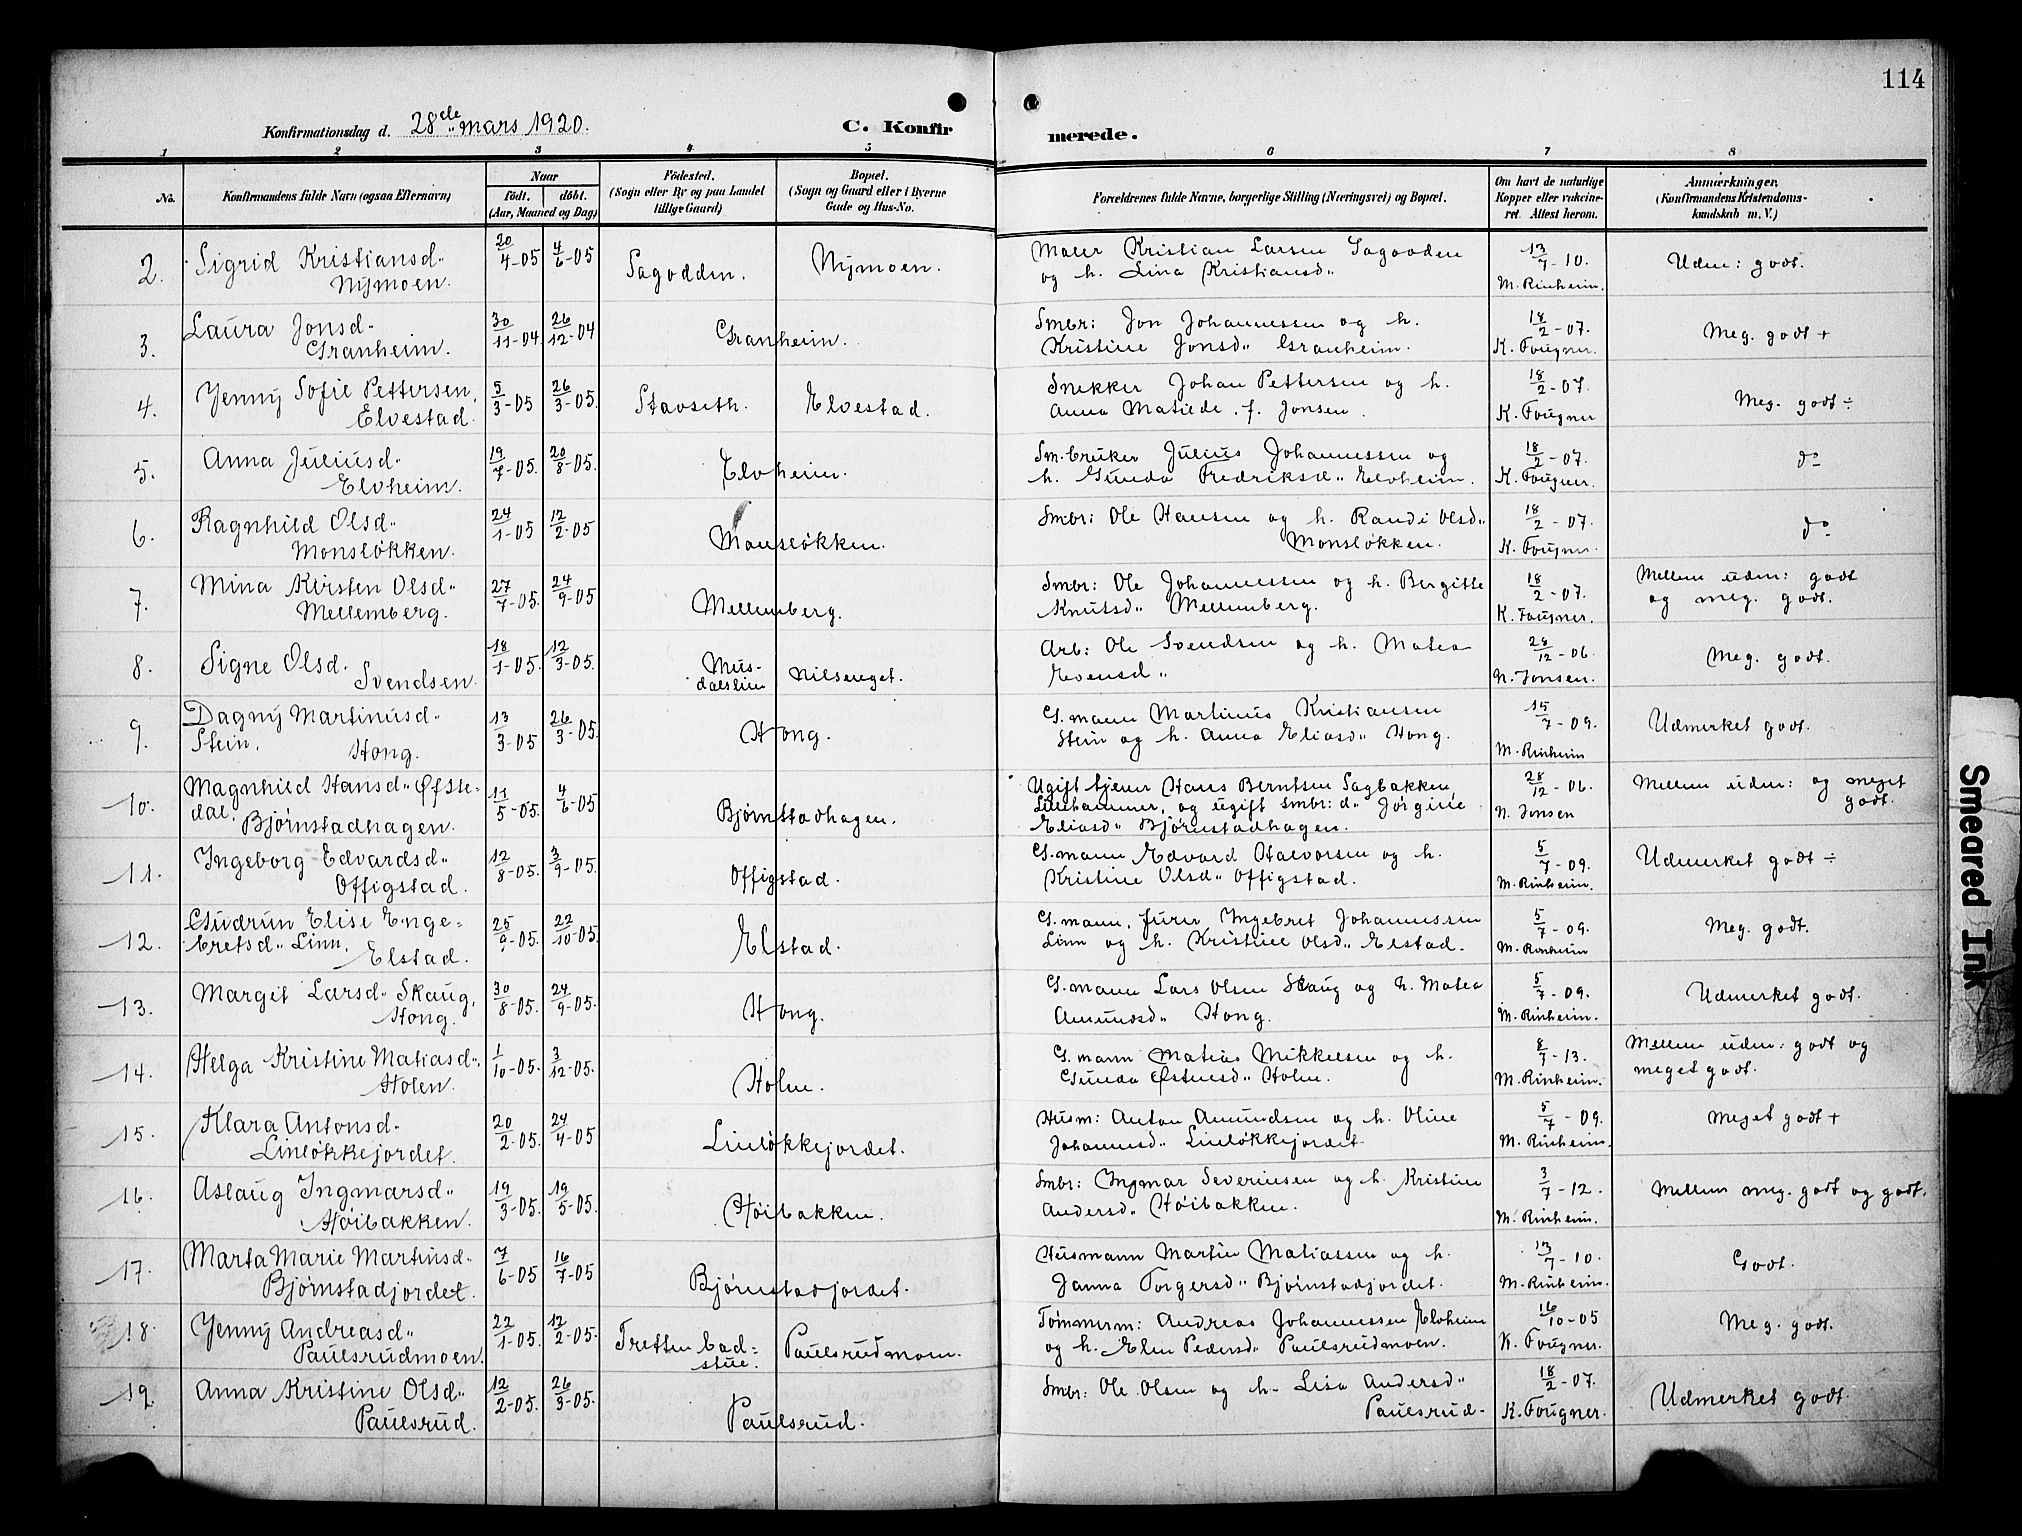 114
Konfirmationsdag d. 28de mars 1920.
C. Konfirmerede.
1 2 3 4 5 6 7 8
No.
Konfirmandens fulde Navn (ogsaa Efternavn)
Naar
födt. döbt.
(Aar, Maaned og Dag)
Födested.
(Sogn eller By og paa Landet
tillige Gaard)
Bopæl.
(Sogn og Gaard eller i Byerne
Gade og Hus-No.
Forældrenes fulde Navne, borgerlige Stilling (Næringsvei) og Bopæl.
Om havt de naturlige
Kopper eller vakcine-
ret. Attest herom.
Anmærkninger.
(Konfirmandens Kristendoms-
kundskab m. V.)
2. Sigrid Kristiansd. Nymoen. 20/4-05 4/6-05 Sagodden. Nymoen. Maler Kristian Larsen Sagodden 13/7-10. Udm: godt.
og h. Lina Kristiansd. M. Rinheim.
3. Laura Jonsd. Granheim. 30/11-04. 26/12-04 Granheim. Smbr: Jon Johannessen og h. 18/2-07. Meg. godt +
Kristine Jonsd. Granheim. K. Fougner.
4. Jenny Sofie Pettersen, Elvestad. 5/3-05 26/3-05. Stavseth. Elvestad. Snekker Johan Pettersen og h. 18/2-07 Meg. godt ÷
Anna Matilde f. Jonsen. K. Fougner
5. Anna Juliusd. Elvheim. 19/7-05. 20/8-05. Elvheim. Sm.bruker Julius Johannessen og 18/2-07. do
h. Gunda Fredriksd. Elvheim. K. Fougner.
6. Ragnhild Olsd. Monsløkken. 24/1-05 12/2-05 Monsløkken. Smbr: Ole Hansen og h. Randi Olsd. 18/2-07. do
Monsløkken. K. Fougner.
7. Mina Kirsten Olsd. Mellemberg. 27/7-05. 24/9-05 Mellemberg. Smbr: Ole Johannessen og h. Bergitte 18/2-07. Mellem udm: godt
Knutsd. Mellemberg. K. Fougner. og meg. godt.
8. Signe Olsd. Svendsen 18/1-05. 12/3-05. Mus-
dalslien Nilsenget. Arb: Ole Svendsen og h. Matea 28/12-06. Meg. godt.
Evensd. N. Jonsen.
9. Dagny Martinusd. Stein. Hong. 13/3-05 26/3-05. Hong. G.mann Martinus Kristiansen 15/7-09. Udmerket godt.
Stein og h. Anna Eliasd. Hong. M. Rinheim
10. Magnhild Hansd. Øfste-
dal. Bjørnstadhagen. 11/5-05. 4/6-05 Bjørnstadhagen. Ugift tjener Hans Berntsen Sagbakken, 28/12-06. Mellem udm: og meget
Lillehammer, og ugift smbr:d. Jørgine N. Jonsen godt.
Eliasd. Bjørnstadhagen.
11. Ingeborg Edvardsd. Offigstad. 12/8-05. 3/9-05. Offigstad. G.mann Edvard Halvorsen og h. 5/7-09. Udmerket godt ÷
Kristine Olsd. Offigstad. M. Rinheim.
12. Gudrun Elise Enge-
bretsd. Linn. Elstad. 25/9-05. 22/10-05. Elstad. G.mann. furer Ingebret Johannessen 5/7-09. Meg. godt.
Linn og h. Kristine Olsd. Elstad. M. Rinheim
13. Margit Larsd. Skaug, Hong. 30/8-05. 24/9-05. Hong. G.mann Lars Olsen Skaug og h. Matea 5/7-09. Udmerket godt.
Amundsd. Hong. M. Rinheim.
14. Helga Kristine Matiasd. Holen. 1/10-05. 3/12-05. Holen. G.mann Matias Mikkelsen og h. 8/7-13. Mellem udm: godt og
Gunda Østensd. Holen. M. Rinheim. meget godt.
15. Klara Antonsd. Linløkkejordet. 20/2-05. 24/4-05 Linløkkejordet. Husm: Anton Amundsen og h. Oline 5/7-09. Meget godt +
Johannesd. Linløkkejordet. M. Rinheim.
16. Aslaug Ingmarsd. Høibakken. 19/3-05. 19/5-05. Høibakken. Smbr: Ingmar Severinsen og h. Kristine 3/7-12. Mellem meg. godt og godt.
Andersd. Høibakken. M. Rinheim.
17. Marta Marie Martinsd. Bjørnstadjordet. 7/6-05 16/7-05 Bjørnstadjordet. Husmann Martin Matiassen og h. 13/7-10. Godt.
Janna Torgersd. Bjørnstadjordet. M. Rinheim.
18. Jenny Andreasd. Paulsrudmoen. 22/1-05. 12/2-05. Tretten bad-
stue. Paulsrudmoen. Tømmerm: Andreas Johannessen Elvheim 16/10-05 Meg. godt.
og h. Elen Pedersd. Paulsrudmoen. K. Fougner.
19. Anna Kristine Olsd. Paulsrud. 12/2-05. 26/3-05. Paulsrud. Smbr: Ole Olsen og h. Lisa Andersd. 18/2-07. Udmerket godt.
Paulsrud. K. Fougner.
Smeared Ink